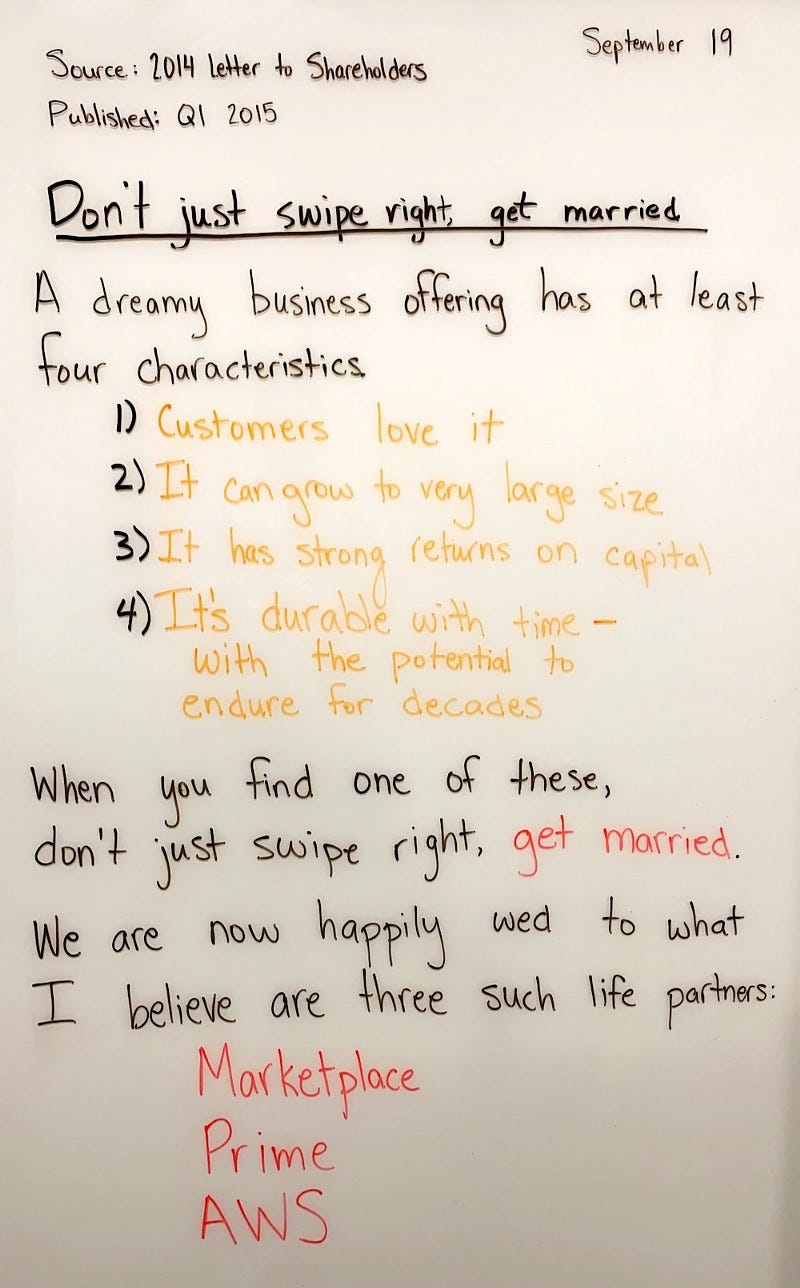 September 19
Source: 2014 Letter to Shareholders
Published: Q1 2015
Don't just swipe right, get married
A dreamy business offering has at least
four characteristics.
1) Customers love it
2) It can grow to very large size
3) It has strong returns on capital
4) It's durable with time –
with the potential to
endure for decades
When you find one of these,
don't just swipe right, get married.
We are now happily wed to what
I believe are three such life partners:
Marketplace
Prime
AWS